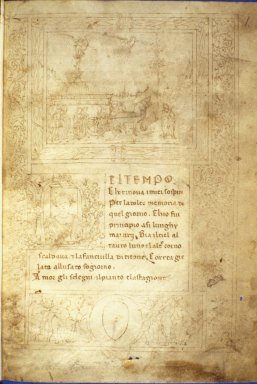 EL TEMPO
Che rinova imiei sospiri
Per la dolce memoria di
quel giorno. Che fu
principio asi lunghi
martiri. Gia il sol al
tauro luno e laltro corno
scaldaua. e la fanciulla di titone. Correa gie
lata al usato sogiorno.
Amor gli sdegni il pianto e la stagione